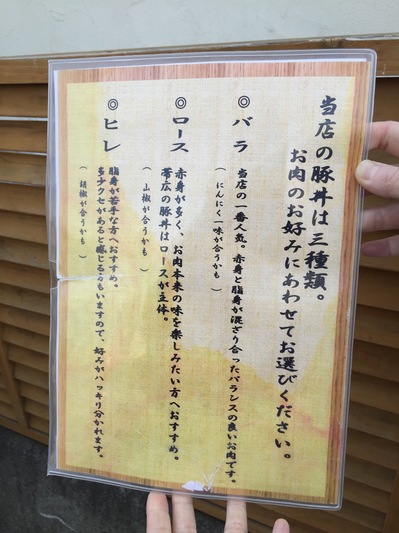 当店の豚丼は三種類。
お肉のお好みにあわせてお選びください。
◎ バラ
当店の一番人気。赤身と脂身が混ざり合ったバランスの良いお肉です。
(にんにく一味が合うかも)
◎ ロース
赤身が多く、お肉本来の味を楽しみたい方へおすすめ。
帯広の豚丼はロースが主体。
(山椒が合うかも)
◎ ヒレ
脂身が苦手な方へおすすめ。
多少クセがあると感じる方もいますので、好みがハッキリ分かれます。
(胡椒が合うかも)